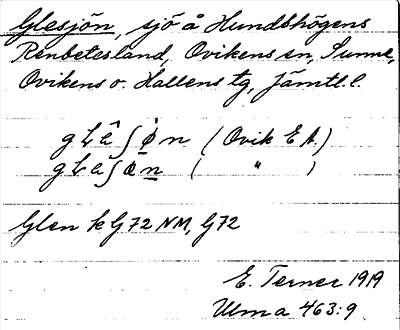 Glesjön, sjö å Hundshögens
Renbetesland, Ovikens sn, Sunne,
Ovikens o. Hallens tg, Jämtl.l.
(Ovik E A.)
( " )
Glen k G72 NM, G72
E. Terner 1919
Ulma 463:9